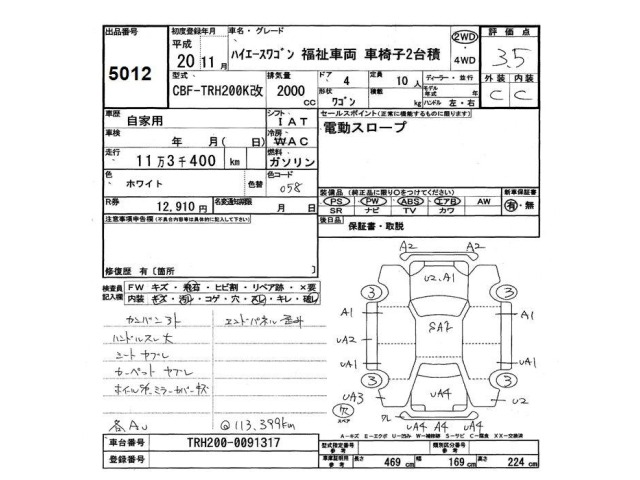 出品番号
5012
初度登録年月
平成
20 11 月
車名・グレード
ハイエースワゴン 福祉車両 車椅子2台積
2WD
・
4WD
評価点
3.5
外装 内装
C C
型式
CBF-TRH200K改
排気量
2000
cc
ドア
4
定員
10 人
形状
ワゴン
積載
kg
ディーラー・並行
モデル年式 年
ハンドル 左・右
車歴
自家用
シフト
I A T
セールスポイント(正常に機能するものに限ります)
電動スロープ
車検
年 月( 日)
冷房
W A C
走行
11 万 3 千 400 km
燃料
ガソリン
色
ホワイト
色替
色コード
058
装備品(純正品に限り○をつけてください)
PS PW ABS エアB AW
SR ナビ TV カワ
新車保証書
有・無
R券
12,910 円
名変通知期限
月 日
後日品
保証書・取説
注意事項申告欄(不具合内容等は具体的に記入して下さい)
修復歴 有〔箇所 〕
検査員記入欄
FW キズ・飛石・ヒビ割・リペア跡・×要
内装 キズ・汚れ・コゲ・穴・スレ・キレ・破れ
カンバン3ト エンドパネル歪ミ
ハンドルスレ大
シートヤブレ
カーペットヤブレ
@113,399km
A2
A2
U2.A1
3 3
A1 A1
SA2
UA2
UA1 UA1
3 3
UA3 UA4 U2
穴
スペア
UA4 A4 UA4
A-キズ E-エクボ U-凹み W-補修跡 S-サビ C-腐食 XX-交換済
車台番号
TRH200-0091317
登録番号
型式指定番号
参考
類別区分番号
参考
車庫証明用
参考
長さ 469 cm
幅 169 cm
高さ 224 cm